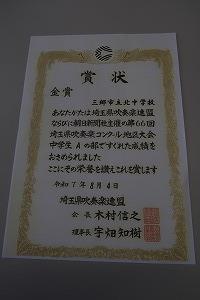 賞状
金賞
三郷市立北中学校
あなたがたは埼玉県吹奏楽連盟
ならびに朝日新聞社主催の第66回
埼玉県吹奏楽コンクール地区大会
中学生Aの部ですぐれた成績を
おさめられました
ここにその栄誉を讃えこれを賞します
令和7年8月4日
埼玉県吹奏楽連盟
会長 木村信之
理事長 宇畑知樹